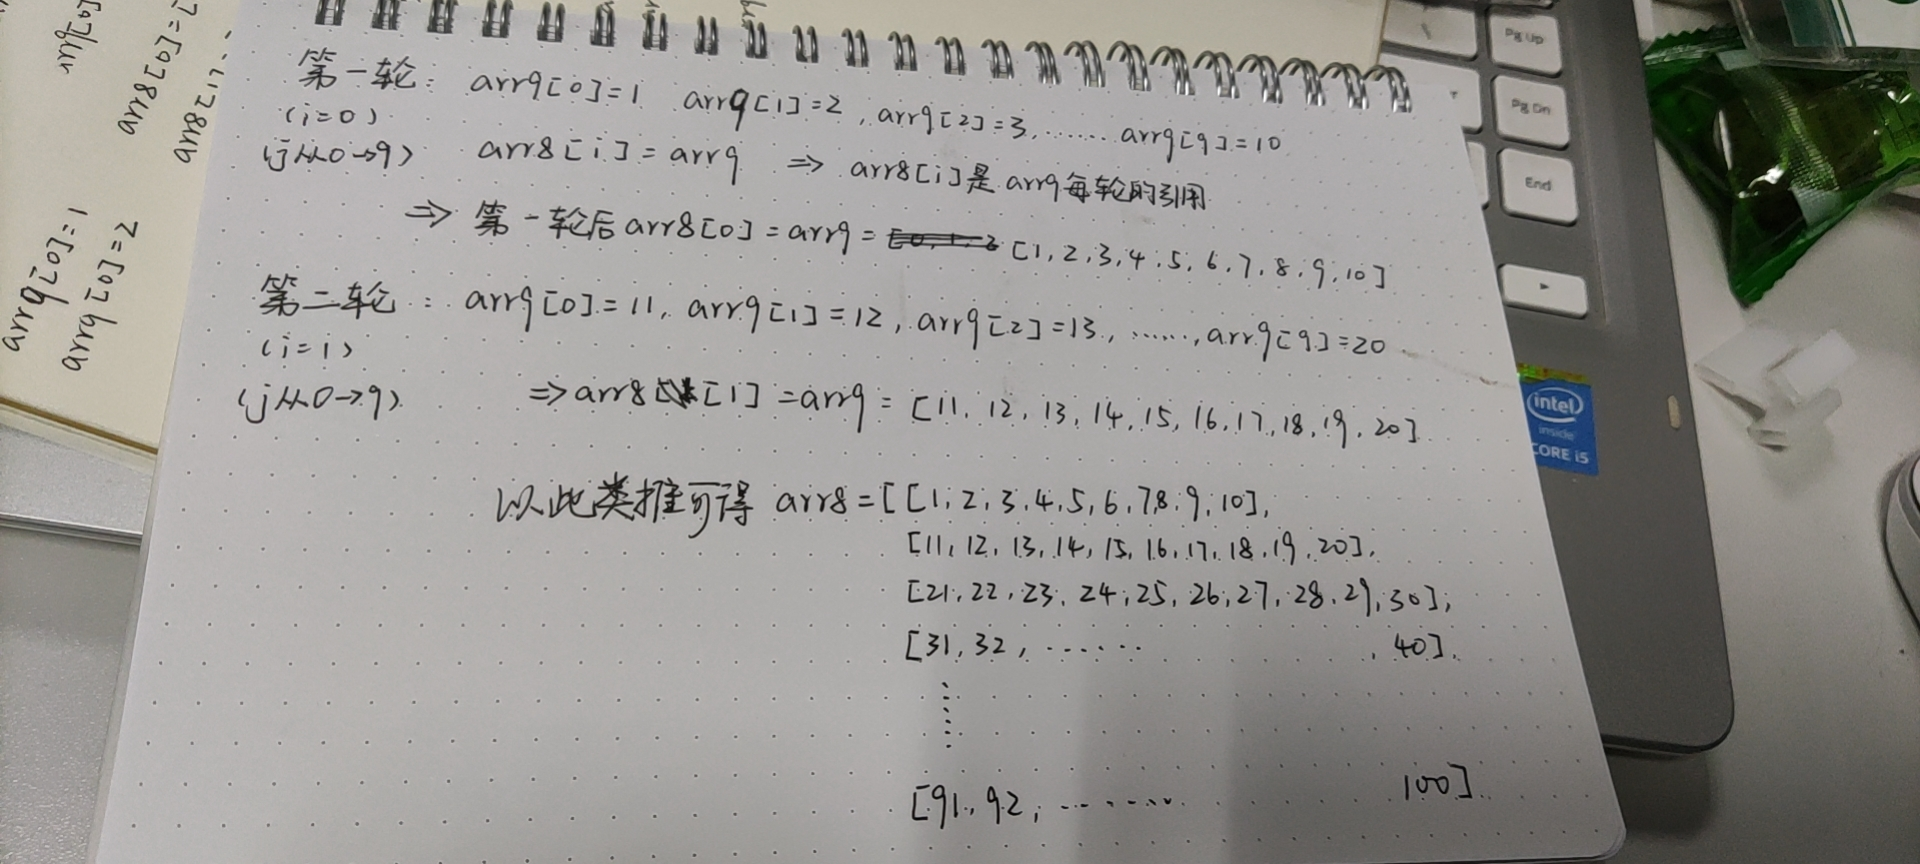 第一轮: arr9[0]=1 arr9[1]=2, arr9[2]=3, ...... arr9[9]=10
(i=0)
(j从0→9) arr8[i]=arr9 ⇒ arr8[i]是arr9每轮的引用
⇒ 第一轮后arr8[0]=arr9= [1,2,3,4,5,6,7,8,9,10]
第二轮: arr9[0]=11, arr9[1]=12, arr9[2]=13, ......, arr9[9]=20
(i=1)
(j从0→9) ⇒arr8[1]=arr9=[11,12,13,14,15,16,17,18,19,20]
以此类推可得 arr8=[[1,2,3,4,5,6,7,8,9,10],
[11,12,13,14,15,16,17,18,19,20],
[21,22,23,24,25,26,27,28,29,30],
[31,32, ...... , 40],
......
[91,92, ........ 100]
arr9[0]=1
arr9[0]=2
Pg Up
Pg Dn
End
intel
inside
CORE i5